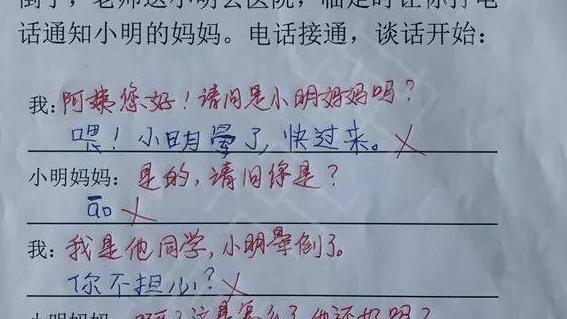 倒了，老师送小明去医院，临走时让你打电
话通知小明的妈妈。电话接通，谈话开始：
我：阿姨您好！请问是小明妈妈吗？
喂！小明晕了，快过来。
小明妈妈：是的，请问你是？
āo
我：我是他同学，小明晕倒了。
你不担心？
小明妈妈：啊？这是怎么了，他还好吗？